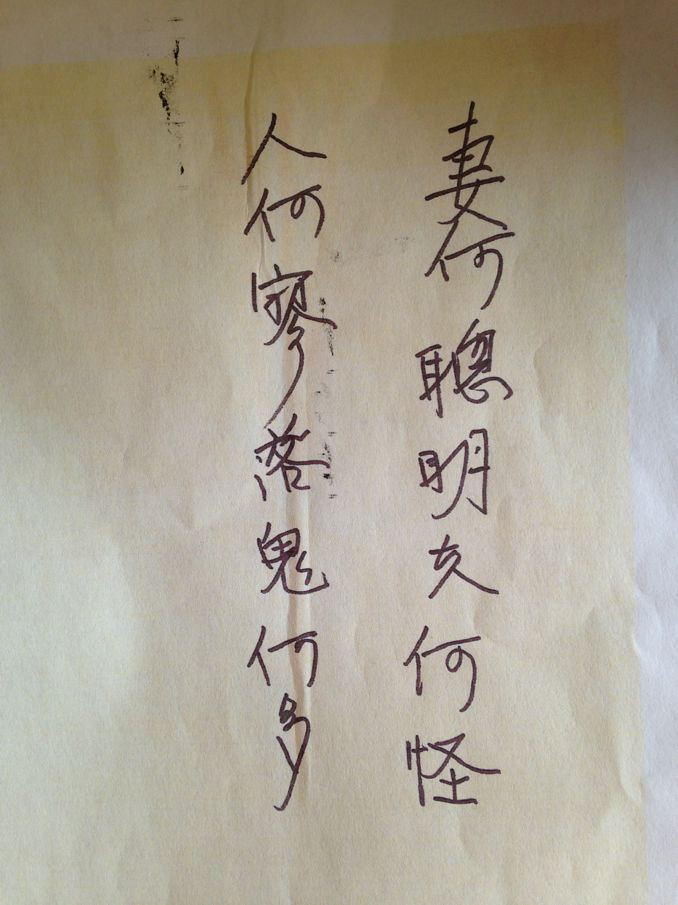 妻何聰明夫何怪
人何寥落鬼何多